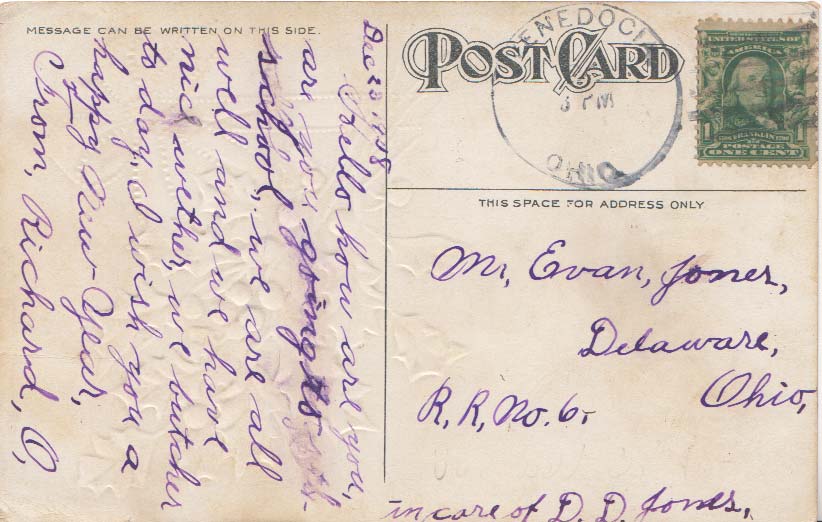 MESSAGE CAN BE WRITTEN ON THIS SIDE.
POST CARD
ENEDOCI
3 PM
OHIO
UNITED STATES OF
AMERICA
1
FRANKLIN
POSTAGE
ONE CENT
THIS SPACE FOR ADDRESS ONLY
Dec 23
Hello how are you,
are you going to
school, we are all
well and we have
nice wether, we butcher
to day, I wish you a
happy New Year,
From, Richard, O,
Mr, Evan, Jones,
Delaware,
Ohio,
R, R, No. 6,
in care of D. D. Jones,